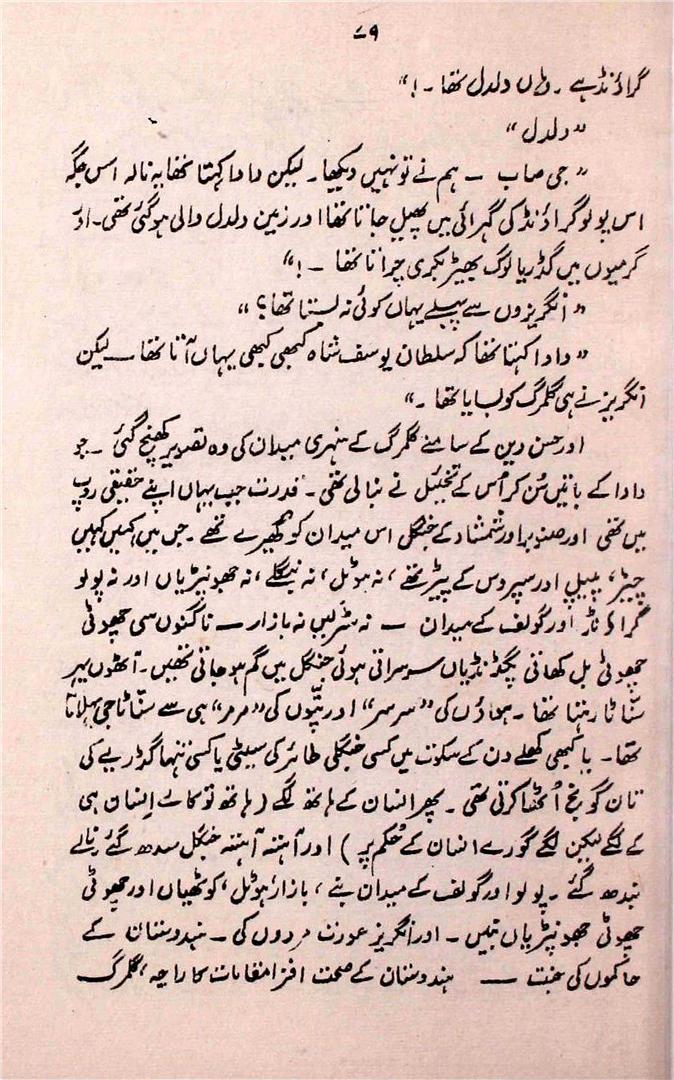 ۷۹
گراؤنڈ ہے ۔ وہاں دلدل تھا ۔ !"
"دلدل"
"جی صاب ۔ ہم نے تو نہیں دیکھا ۔ لیکن دادا کہتا تھا یہ نالہ اس جگہ
اس پولو گراؤنڈ کی گہرائی میں پھیل جاتا تھا اور زمین دلدل والی ہو گئی تھی ۔ اور
گرمیوں میں گڈریا لوگ بھیڑ بکری چراتا تھا ۔ !"
"انگریزوں سے پہلے یہاں کوئی نہ بستا تھا ؟"
"دادا کہتا تھا کہ سلطان یوسف شاہ کبھی کبھی یہاں آتا تھا ۔ لیکن
انگریز نے ہی گلمرگ کو بسایا تھا ۔"
اور حسن دین کے سامنے گلمرگ کے سنہری میدان کی وہ تصویر کھنچ گئی ۔ جو
دادا کے باتیں سُن کر اُس کے تخیّل نے بنالی تھی ۔ قدرت جب یہاں اپنے حقیقی روپ
میں تھی اور صنوبر اور شمشاد کے جنگل اس میدان کو گھیرے تھے ۔ جس میں کہیں کہیں
چیڑ، پیپل اور سپروس کے پیڑ تھے ، نہ ہوٹل ، نہ بنگلے ، نہ جھونپڑیاں اور نہ پولو
گراؤنڈ اور گولف کے میدان ۔ نہ سڑکیں نہ بازار ۔ ناگنوں سی چھوٹی
چھوٹی بل کھاتی پگڈنڈیاں سرسراتی ہوئی جنگل میں گم ہو جاتی تھیں ۔ آٹھوں پہر
سنّاٹا رہتا تھا ۔ ہواؤں کی "سرسر" اور پتّوں کی "مرمر" ہی سے سنّاٹا جی بہلاتا
تھا ۔ یا کبھی کھلے دن کے سکوت میں کسی جنگلی طائر کی سیٹی یا کسی تنہا گڈریے کی
تان گونج اُٹھا کرتی تھی ۔ پھر انسان کے ہاتھ لگے ( ہاتھ تو کالے انسان ہی
کے لگے لیکن لگے گورے انسان کے حُکم پر ) اور آہستہ آہستہ جنگل سدھ گئے نالے
بندھ گئے ۔ پولو اور گولف کے میدان بنے ، بازار، ہوٹل ، کوٹھیاں اور چھوٹی
چھوٹی جھونپڑیاں بنیں ۔ اور انگریز عورت مردوں کی ۔ ہندوستان کے
حاکموں کی جنت ۔ ہندوستان کے صحت افزا مقامات کا راجہ ، گلمرگ